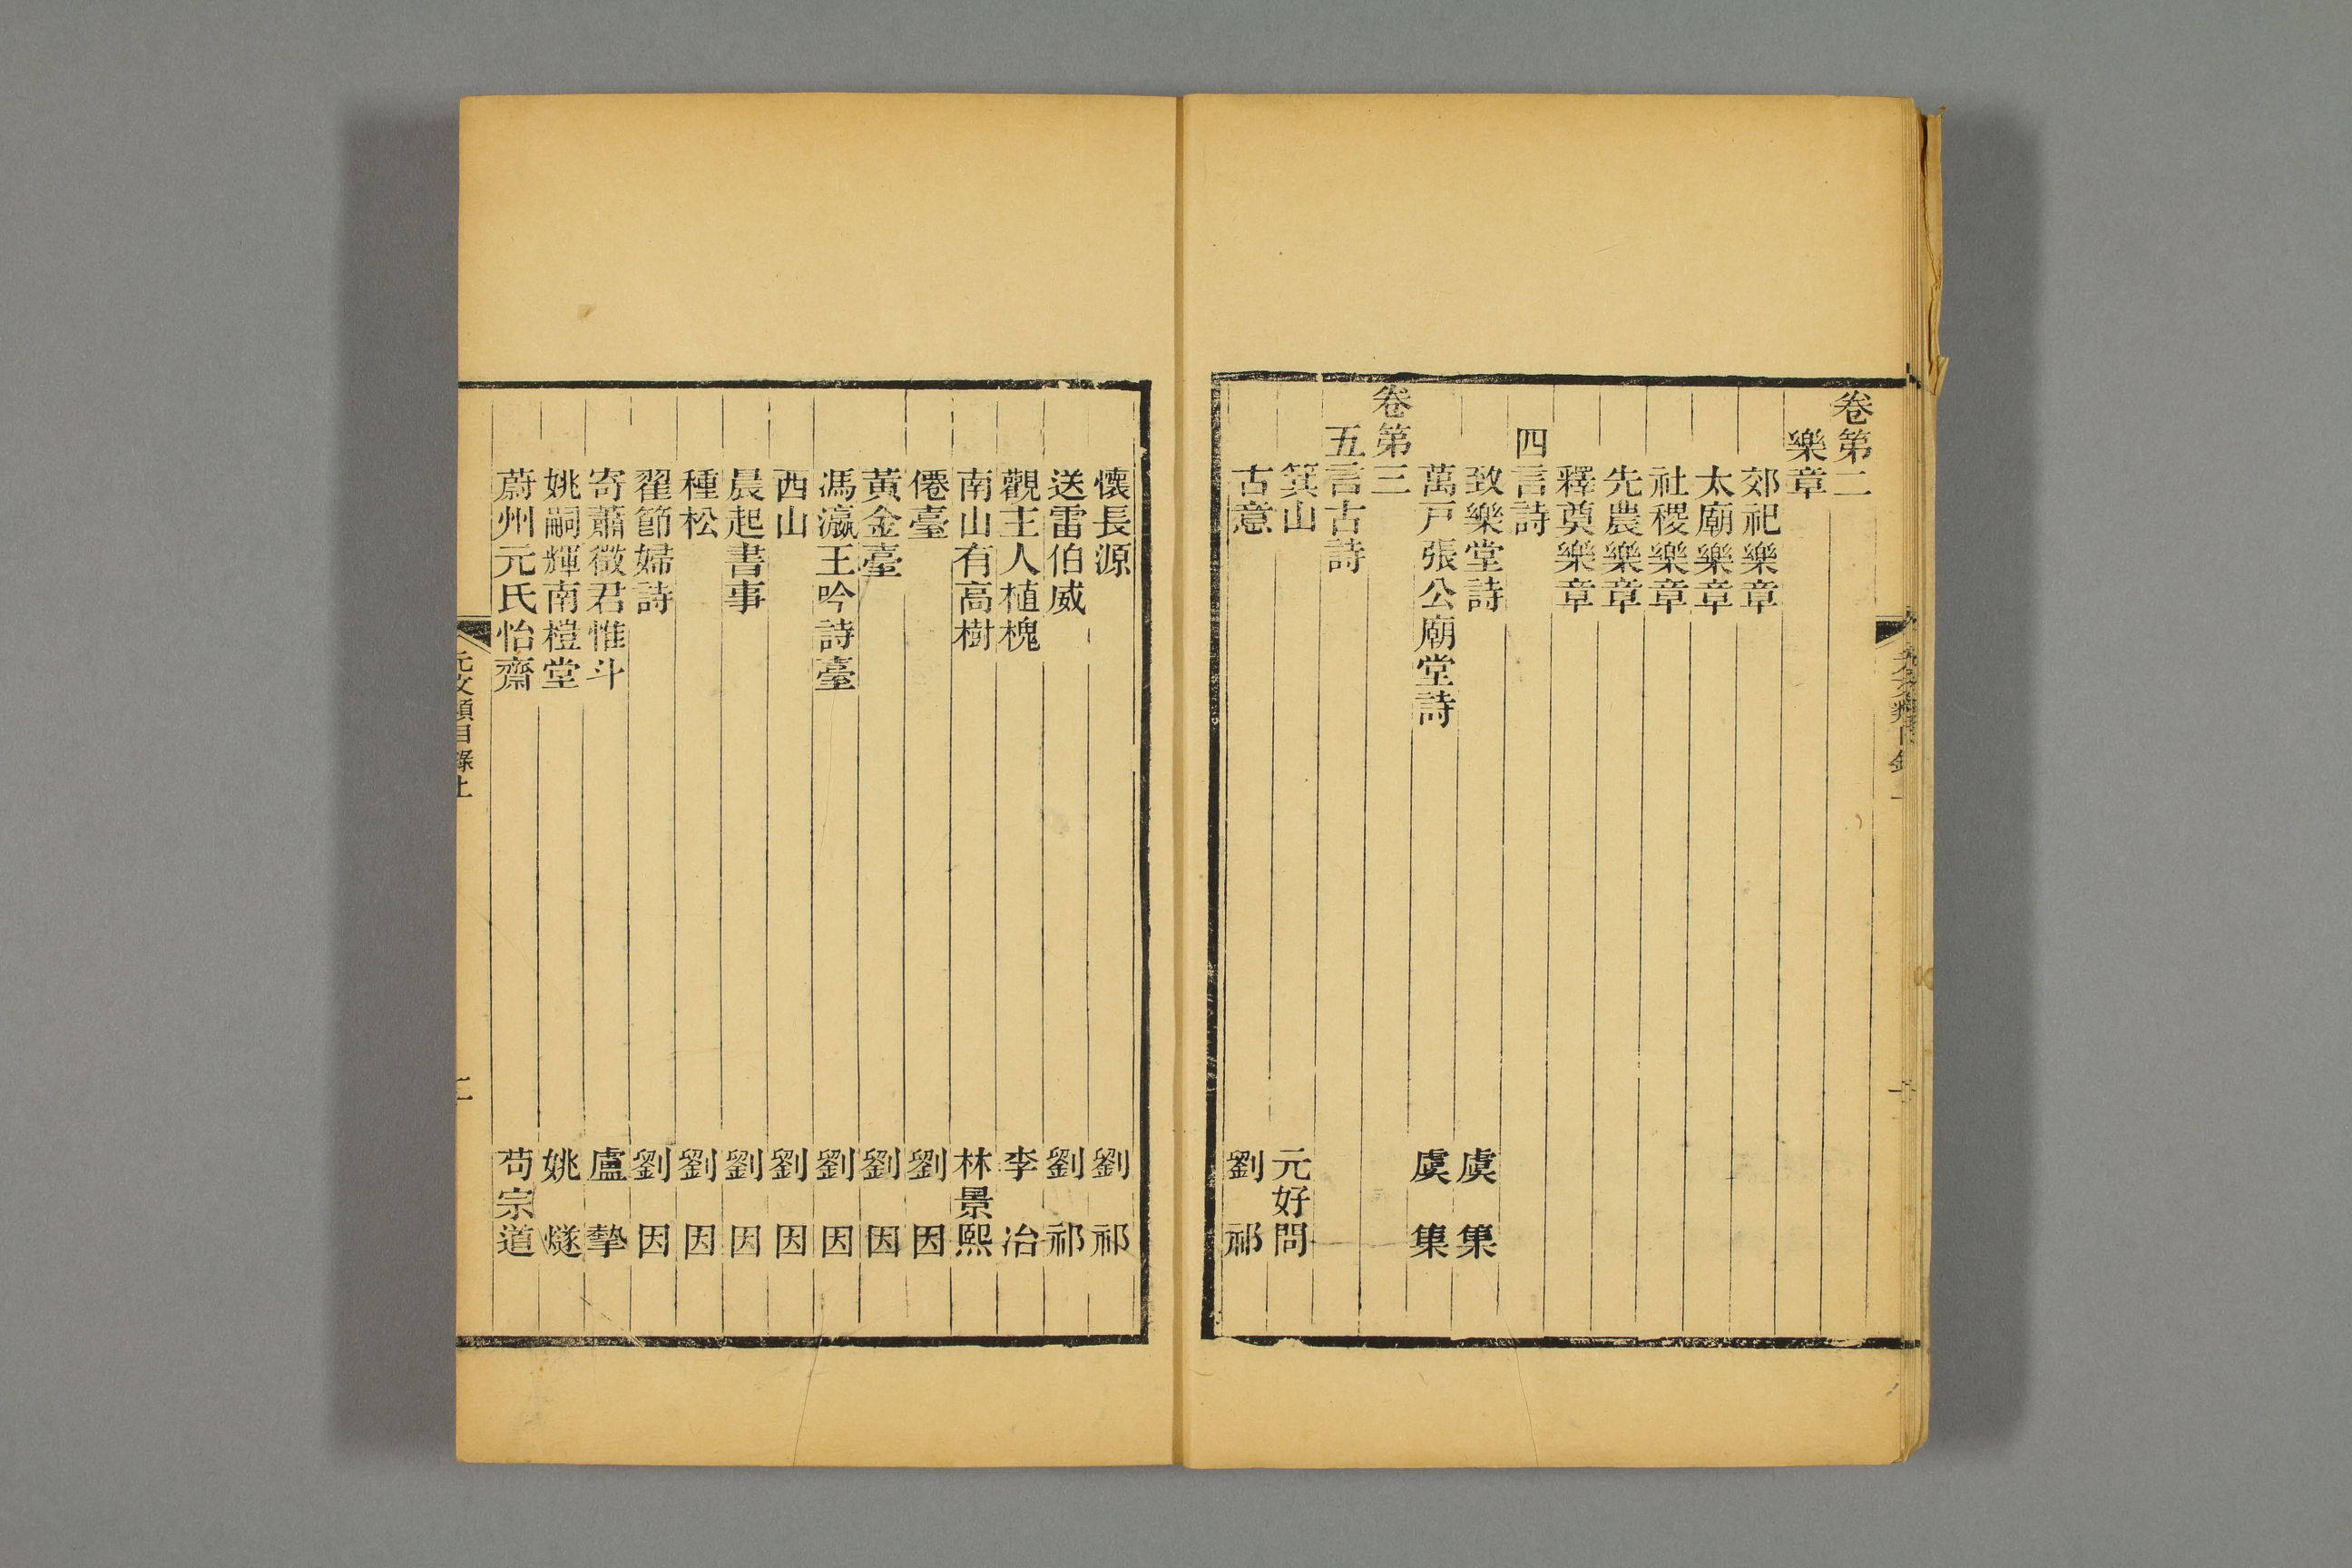 卷第二
樂章
郊祀樂章
太廟樂章
社稷樂章
先農樂章
釋奠樂章
四言詩
致樂堂詩　虞集
萬戸張公廟堂詩　虞集
卷第三
五言古詩
箕山　元好問
古意　劉祁
懷長源　劉祁
送雷伯威　劉祁
觀主人植槐　李冶
南山有高樹　林景熙
僊臺　劉因
黃金臺　劉因
馮瀛王吟詩臺　劉因
西山　劉因
晨起書事　劉因
種松　劉因
翟節婦詩　劉因
寄蕭徵君惟斗　盧摯
姚嗣輝南榿堂　姚燧
蔚州元氏怡齋　苟宗道
元文類目錄上
二